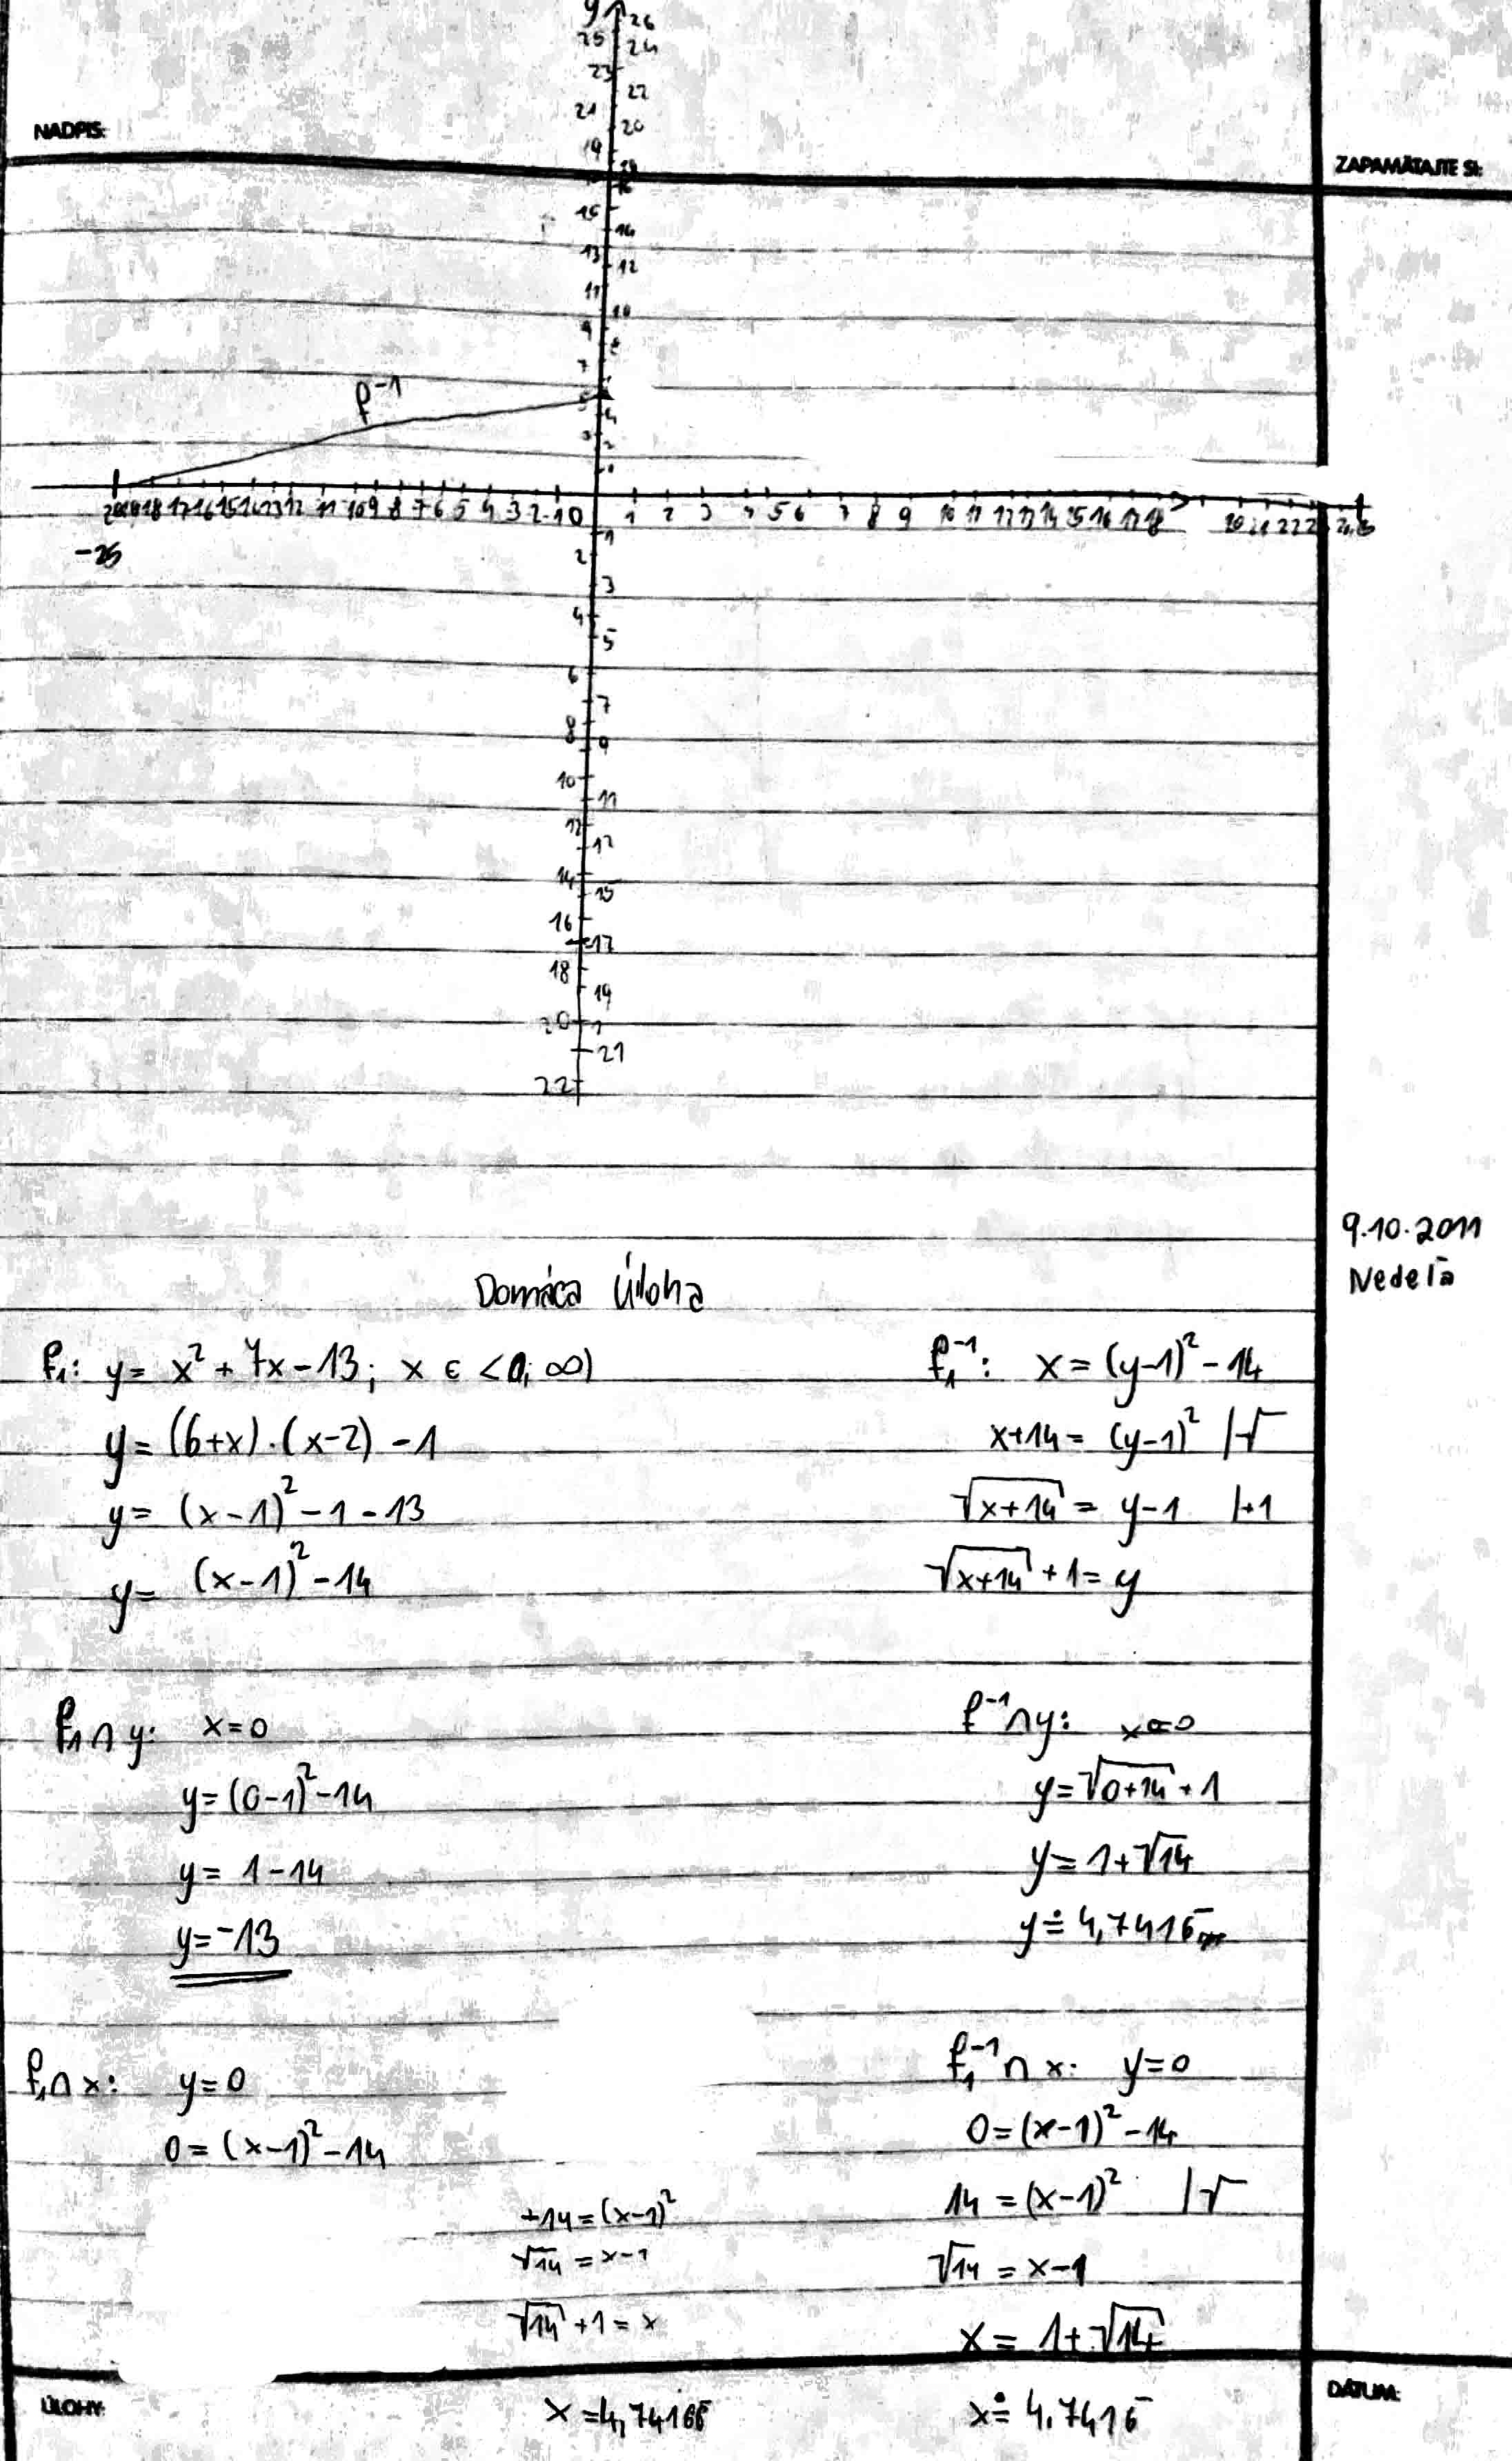 y 26
25 24
23
22
21
20
NADPIS:
19
ZAPAMÄTAJTE SI:
15
14
13
12
11
10
9
8
7
f⁻¹
5
4
3
2
18 17 16 15 14 13 12 11 10 9 8 7 6 5 4 3 2 1 0 1 2 3 4 5 6 7 8 9 10 11 12 13 14 15 16 17 18 20 21 22
-25
1
2
3
4
5
6
7
8
9
10
11
12
14
15
16
17
18
19
20
21
22
9.10.2011
Nedeľa
Domáca Úloha
f₁: y = x² + 7x - 13; x ∈ <0; ∞) f₁⁻¹: x = (y-1)² - 14
y = (6+x)·(x-2) - 1 x+14 = (y-1)² |√
y = (x-1)² - 1 - 13 √x+14 = y-1 |+1
y = (x-1)² - 14 √x+14 + 1 = y
f₁ ∩ y: x=0 f⁻¹ ∩ y: x=0
y = (0-1)² - 14 y = √0+14 + 1
y = 1 - 14 y = 1 + √14
y = -13 y ≐ 4,7416
f₁ ∩ x: y=0 f₁⁻¹ ∩ x: y=0
0 = (x-1)² - 14 0 = (x-1)² - 14
+14 = (x-1)² 14 = (x-1)² |√
√14 = x-1 √14 = x-1
√14 + 1 = x x = 1 + √14
ÚLOHY: x = 4,74166 x ≐ 4,7416 DÁTUM: